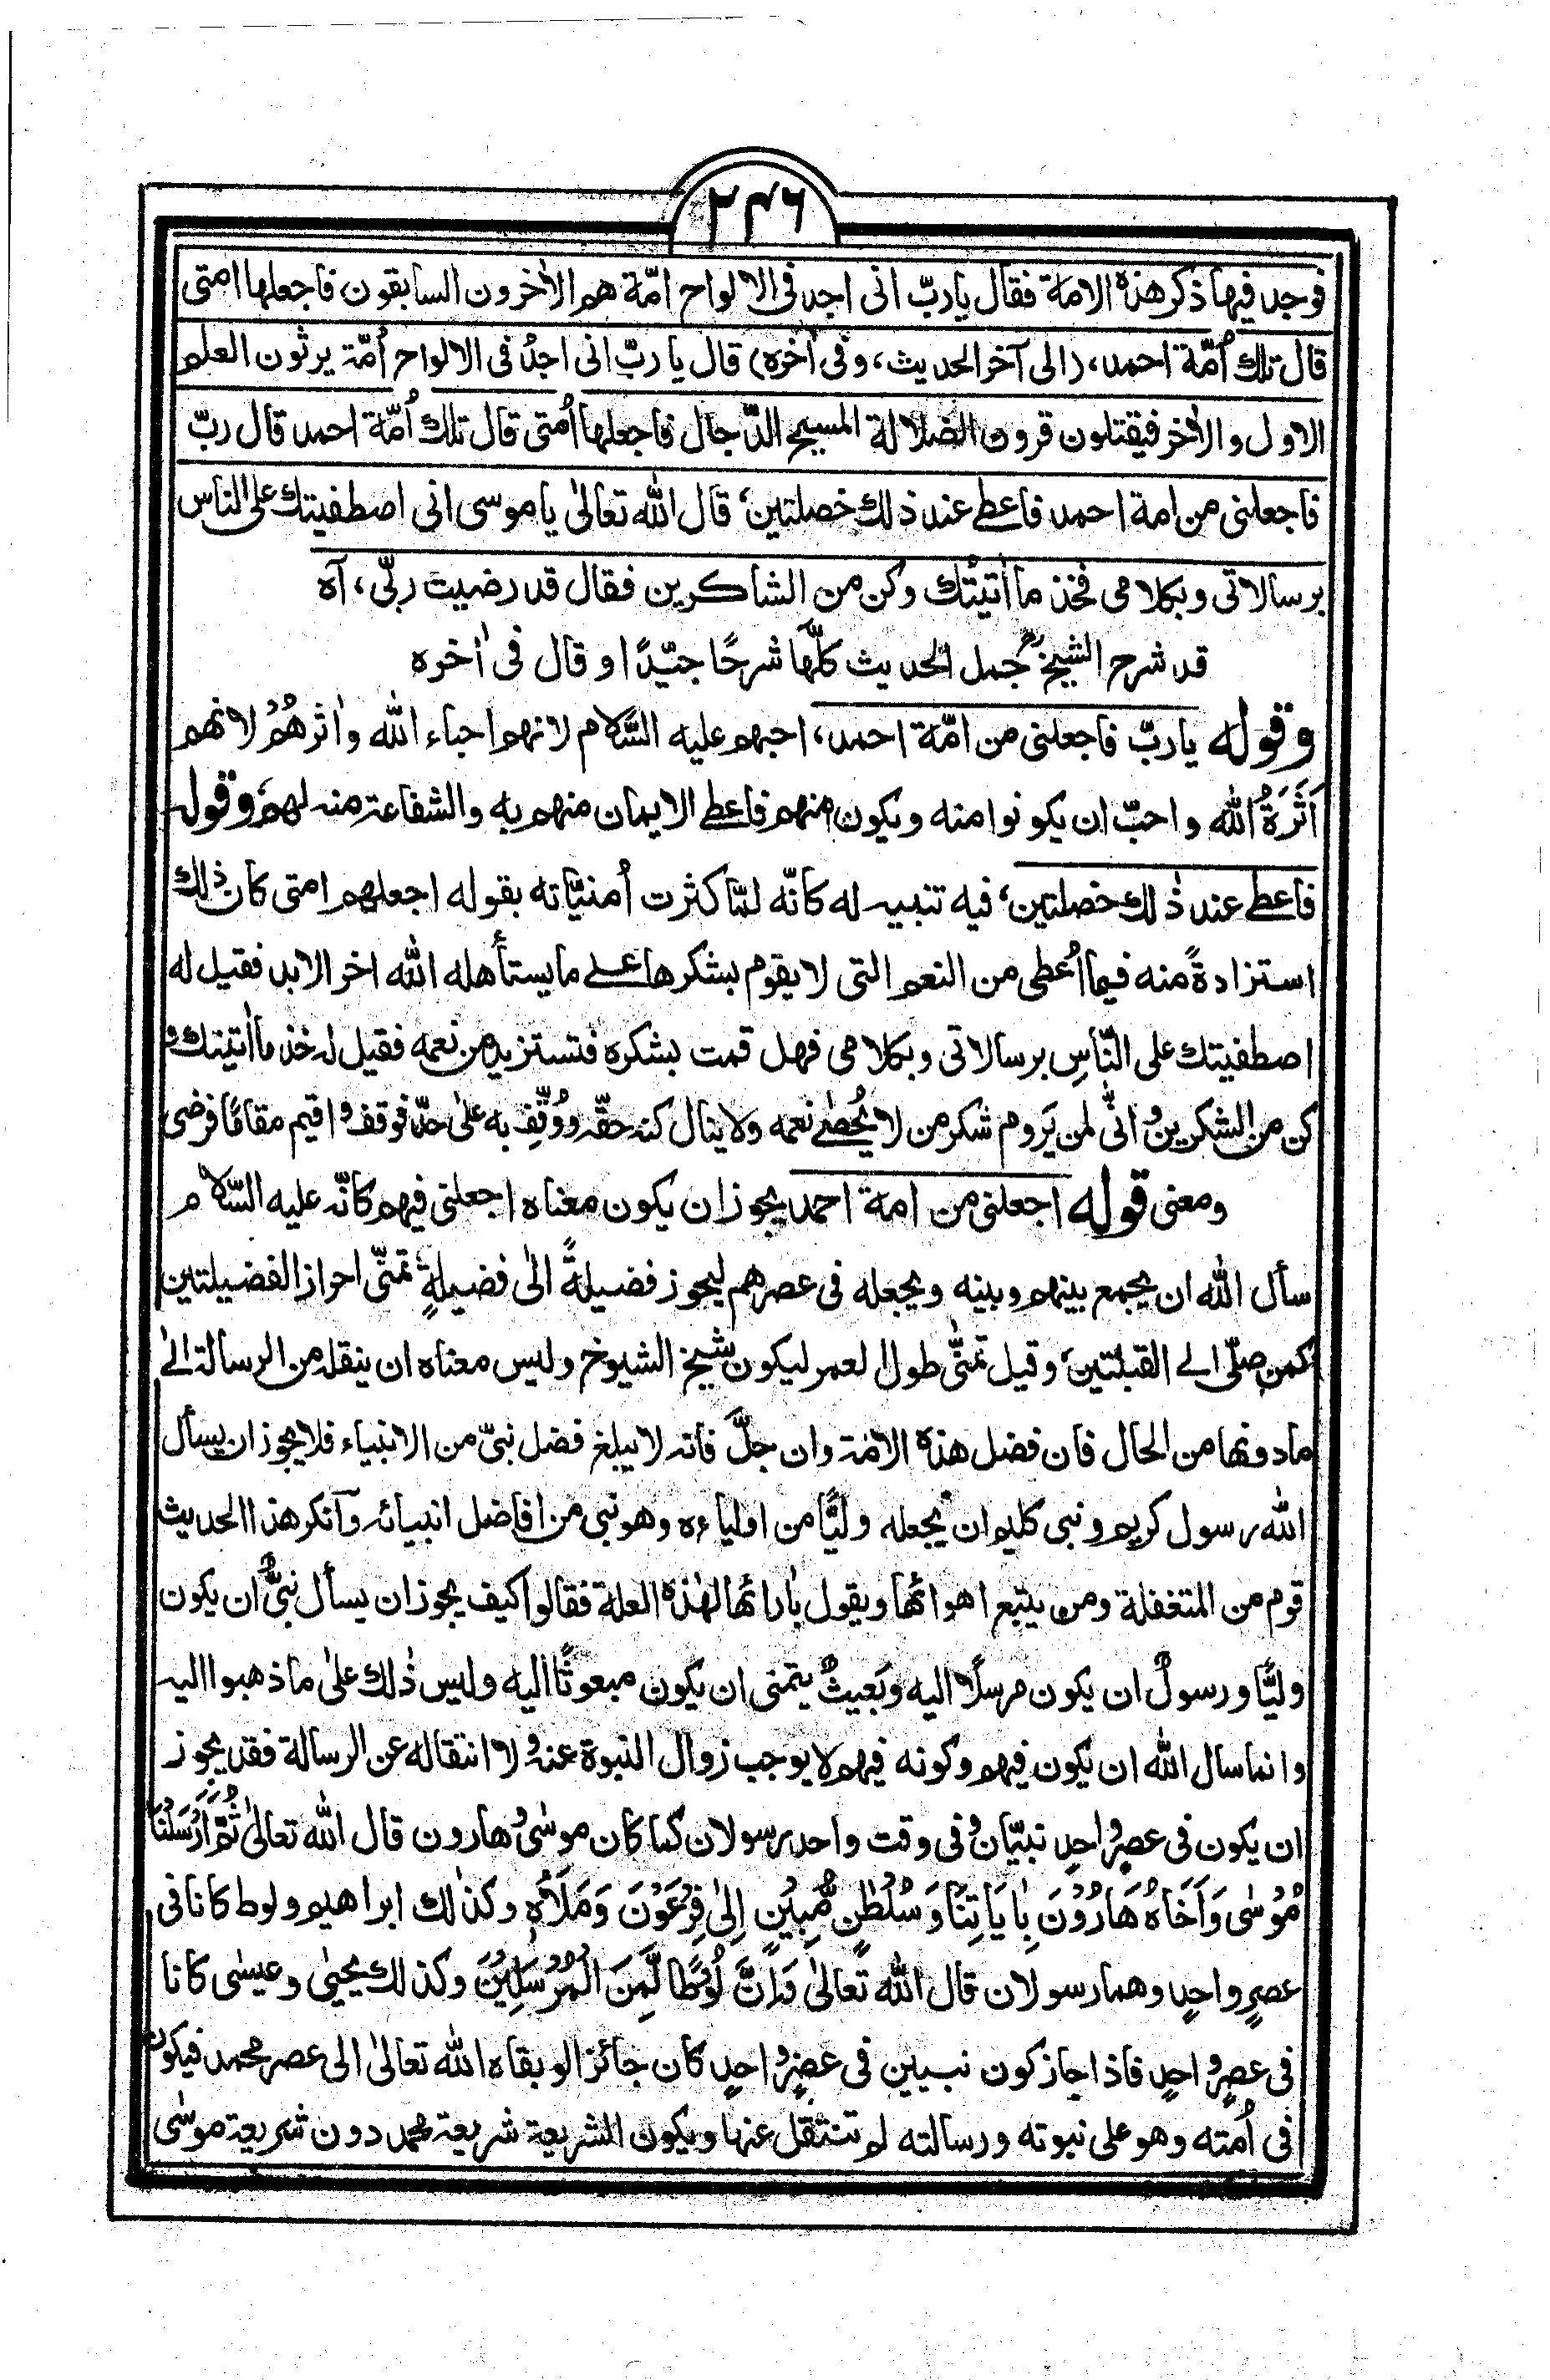 ٢٤٦
فوجد فيها ذكر هذه الامة فقال يا ربّ انى اجد فى الالواح امّة هم الاٰخرون السابقون فاجعلها امتى
قال تلك اُمّة احمد، (الى آخر الحديث، وفى اٰخره) قال يا ربّ انى اجدُ فى الالواح اُمّة يرثون العلم
الاول والاٰخر فيقتلون قرون الضلالة المسيح الدّجال فاجعلها اُمتى قال تلك اُمّة احمد قال ربّ
فاجعلنى من امة احمد فاعطے عند ذلك خصلتين، قال الله تعالىٰ يا موسى انى اصطفيتك على الناس
برسالاتى وبكلامى فخذ ما اٰتيتُك وكن من الشاكرين فقال قد رضيت ربّى، آه
قد شرح الشيخؒ جُمل الحديث كلّها شرحًا جيّدًا وقال فى اٰخره
وقوله يا ربّ فاجعلنى من امّة احمد، احبهم عليه السَّلام لانهم احباء الله واٰثرهُمْ لانهم
اَثَرَةُ الله واحبّ ان يكونوا منه ويكون منهم فاعطے الايمان منهم به والشفاعة منه لهم، وقوله
فاعطے عند ذٰلك خصلتين، فيه تنبيه له كانّه لمّا كثرت اُمنيّاته بقوله اجعلهم امتى كان ذٰلك
استزادةً منه فيما اُعطى من النعم التى لا يقوم بشكرها علے ما يستأهله الله اخر الابد فقيل له
اصطفيتك على النّاسِ برسالاتى وبكلامى فهل قمت بشكره فتستزيد من نعمه فقيل له خذ ما اٰتيتك و
كن من الشكرين و انّٰى لمن يَروم شكر من لا يُحصےٰ نعمه ولا ينال كنه حقّه ووُقِّف به علىٰ حدّ فوقف و اقيم مقامًا فرضى
ومعنى قوله اجعلنى من امة احمد يجوز ان يكون معناه اجعلنى فيهم كانّه عليه السّلام
سأل الله ان يجمع بينهم وبينه ويجعله فى عصرهم ليحوز فضيلةً الىٰ فضيلةٍ تمنّٰى احراز الفضيلتين
كمن صلّى الے القبلتين، وقيل تمنّٰى طول العمر ليكون شيخ الشيوخ وليس معناه ان ينقله من الرسالة الےٰ
ما دونها من الحال فان فضل هذه الامة وان جلَّ فانه لا يبلغ فضل نبىّ من الانبياء فلا يجوز ان يسأل
الله رسول كريم ونبى كليم ان يجعله وليًّا من اولياءه وهو نبى من افاضل انبيائه وآنكر هذا الحديث
قوم من المتغفلة ومن يتبع اهوائها ويقول باٰرائها لهٰذه العلة فقالوا كيف يجوز ان يسأل نبىٌّ ان يكون
وليًّا ورسولٌ ان يكون مرسلًا اليه وبَعيثٌ يتمنى ان يكون مبعوثًا اليه وليس ذٰلك علىٰ ما ذهبوا اليه
وانما سال الله ان يكون فيهم وكونه فيهم لا يوجب زوال النبوة عنه و لا انتقاله عن الرسالة فقد يجوز
ان يكون فى عصرٍ واحدٍ نبيّان و فى وقت واحد رسولان كما كان موسٰى و هارون قال الله تعالىٰ ثُمَّ اَرْسَلْنَا
مُوْسٰى وَاَخَاهُ هَارُوْنَ بِاٰيَاتِنَا وَسُلْطٰنٍ مُّبِيْنٍ اِلىٰ فِرْعَوْنَ وَمَلَائِهٖ وكذٰلك ابراهيم ولوط كانا فى
عصرٍ واحدٍ وهما رسولان قال الله تعالىٰ وَاِنَّ لُوْطًا لَّمِنَ الْمُرْسَلِيْنَ وكذلك يحيىٰ وعيسٰى كانا
فى عصرٍ واحدٍ فاذا جاز كون نبيين فى عصرٍ واحدٍ كان جائزا لو بقاه الله تعالىٰ الى عصر محمد فيكون
فى اُمته وهو على نبوته ورسالته لم تنتقل عنها ويكون الشريعة شريعة محمد دون شريعة موسٰى